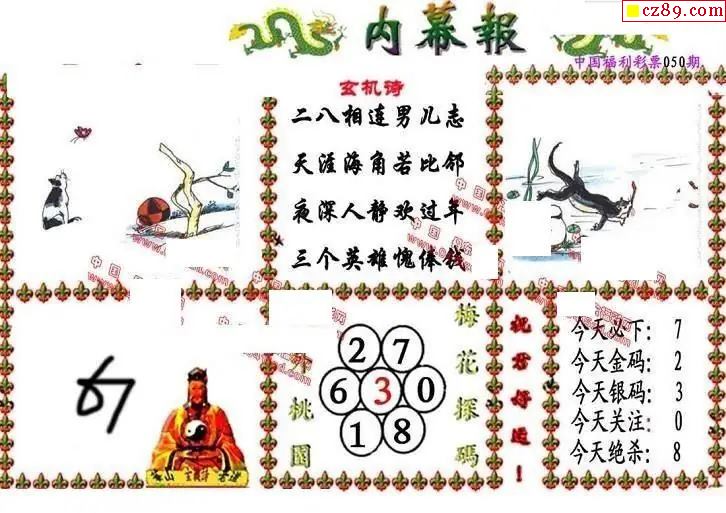 cz89.com
内幕報
中国福利彩票050期
玄机诗
二八相连男儿志
天涯海角若比邻
夜深人静欢过年
三个英雄愧俸钱
外桃園
2 7
6 3 0
1 8
梅花探碼
祝君好运!
今天必下: 7
今天金码: 2
今天银码: 3
今天关注: 0
今天绝杀: 8